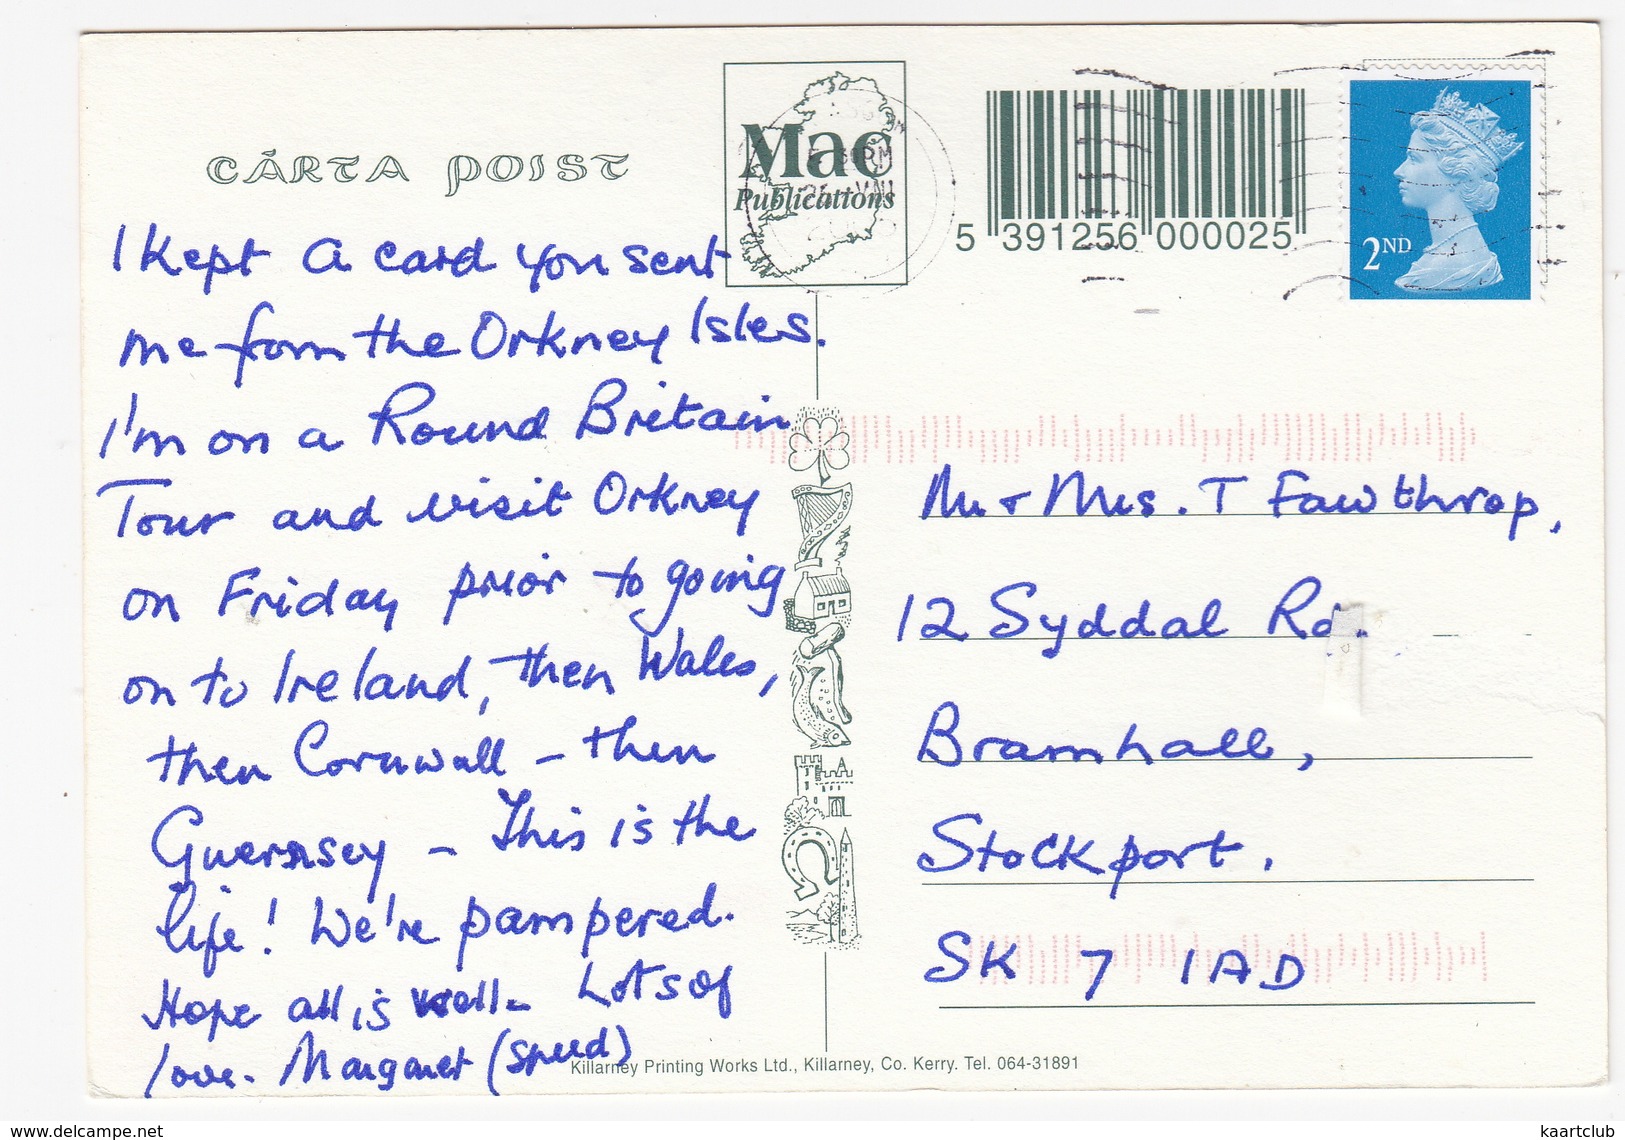 CÁRTA POIST
Mac
Publications
5 391256 000025
2ND
I kept a card you sent
me from the Orkney Isles.
I'm on a Round Britain
Tour and visit Orkney
on Friday prior to going
on to Ireland, then Wales,
then Cornwall – then
Guernsey – This is the
life! We're pampered.
Hope all is well – Lots of
love. Margaret (Speed)
Mr & Mrs. T Fawthrop,
12 Syddal Rd.
Bramhall,
Stockport.
SK 7 1AD
Killarney Printing Works Ltd., Killarney, Co. Kerry. Tel. 064-31891
www.delcampe.net
kaartclub